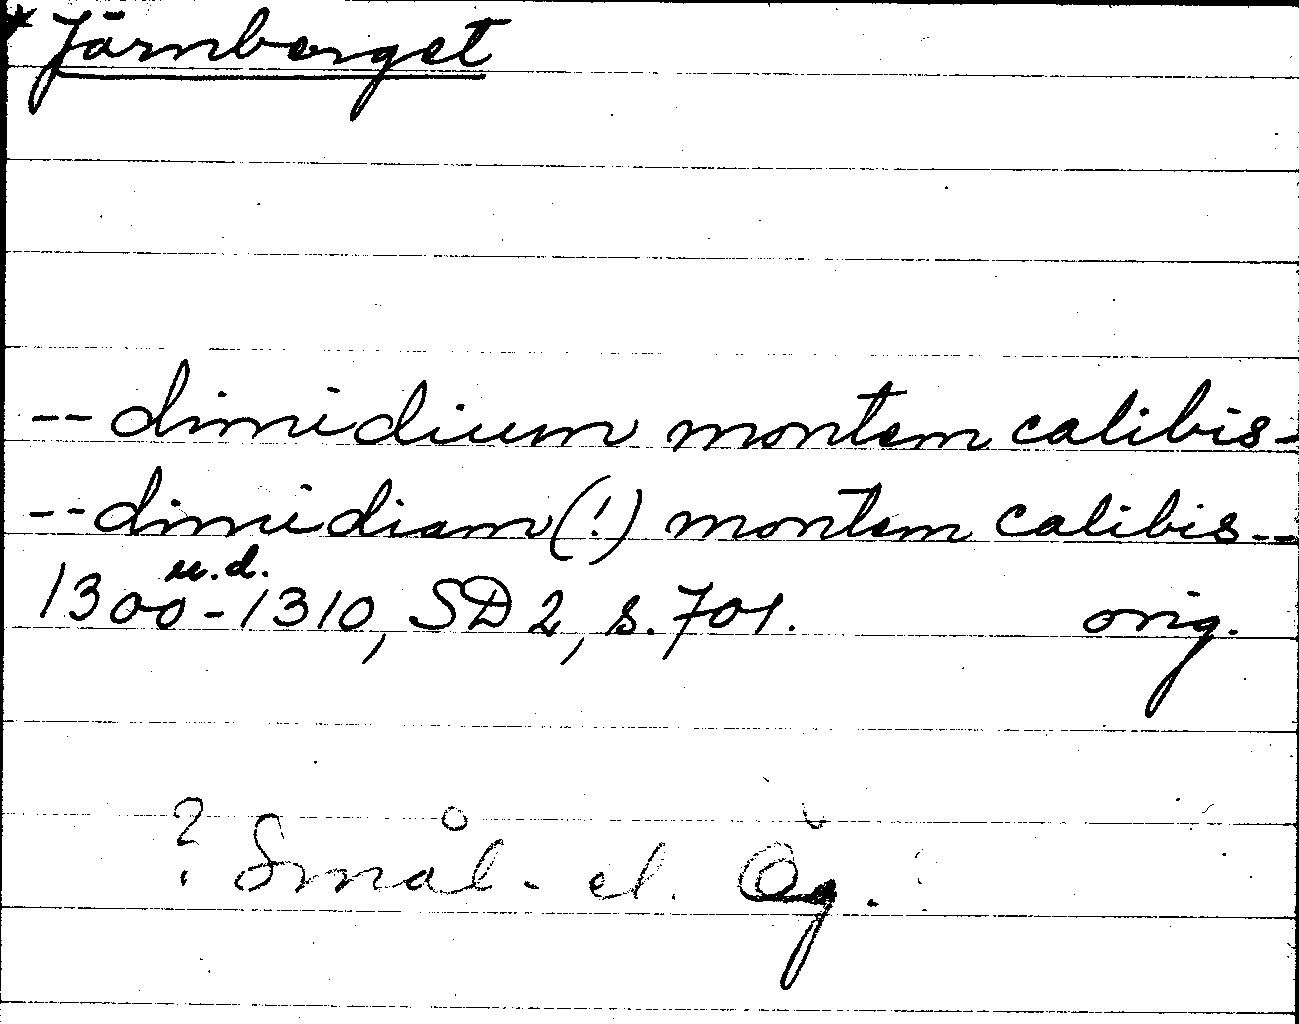 * Järnberget
-- dimidium montem calibis -
-- dimidiam (!) montem calibis --
u.d.
1300-1310, SD 2, s. 701. orig.
? Smål. el. Ög.